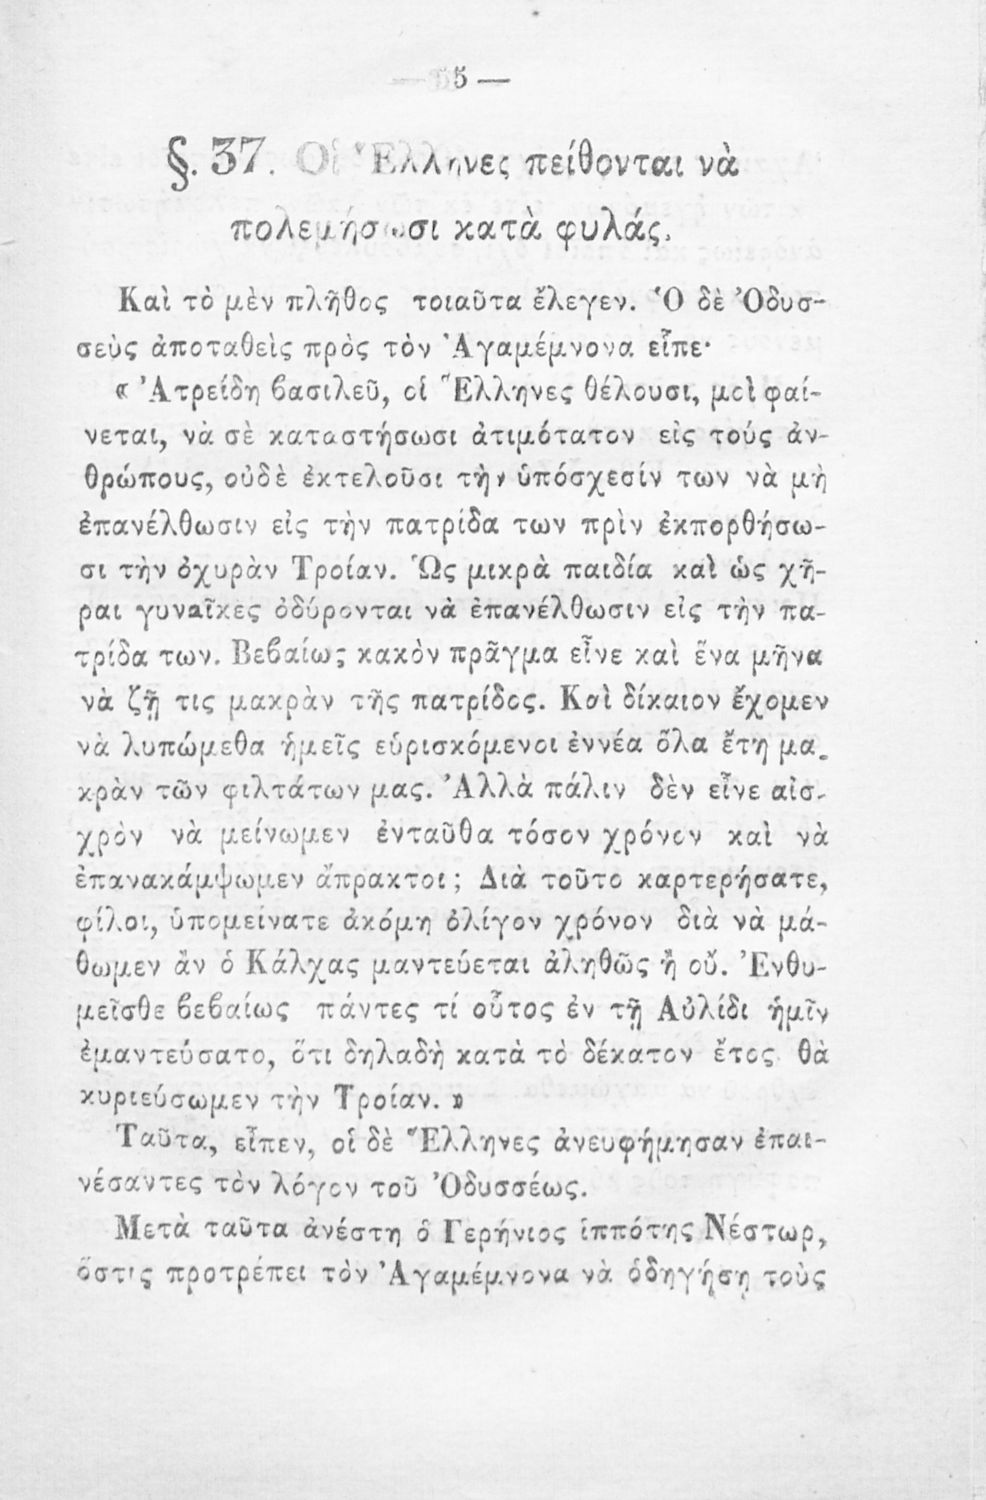 — 55 —
§. 37. Οἱ Ἕλληνες πείθονται νὰ
πολεμήσωσι κατὰ φυλάς.
Καὶ τὸ μὲν πλῆθος τοιαῦτα ἔλεγεν. Ὁ δὲ Ὀδυσ-
σεὺς ἀποταθεὶς πρὸς τὸν Ἀγαμέμνονα εἶπε·
« Ἀτρείδη βασιλεῦ, οἱ Ἕλληνες θέλουσι, μοὶ φαί-
νεται, νὰ σὲ καταστήσωσι ἀτιμότατον εἰς τούς ἀν-
θρώπους, οὐδὲ ἐκτελοῦσι τὴν ὑπόσχεσίν των νὰ μὴ
ἐπανέλθωσιν εἰς τὴν πατρίδα των πρὶν ἐκπορθήσω-
σι τὴν ὀχυρὰν Τροίαν. Ὡς μικρὰ παιδία καὶ ὡς χῆ-
ραι γυναῖκες ὀδύρονται νὰ ἐπανέλθωσιν εἰς τὴν πα-
τρίδα των. Βεβαίως κακὸν πρᾶγμα εἶνε καὶ ἕνα μῆνα
νὰ ζῇ τις μακρὰν τῆς πατρίδος. Καὶ δίκαιον ἔχομεν
νὰ λυπώμεθα ἡμεῖς εὑρισκόμενοι ἐννέα ὅλα ἔτη μα-
κρὰν τῶν φιλτάτων μας. Ἀλλὰ πάλιν δὲν εἶνε αἰσ-
χρὸν νὰ μείνωμεν ἐνταῦθα τόσον χρόνον καὶ νὰ
ἐπανακάμψωμεν ἄπρακτοι; Διὰ τοῦτο καρτερήσατε,
φίλοι, ὑπομείνατε ἀκόμη ὀλίγον χρόνον διὰ νὰ μά-
θωμεν ἂν ὁ Κάλχας μαντεύεται ἀληθῶς ἢ οὔ. Ἐνθυ-
μεῖσθε βεβαίως πάντες τί οὗτος ἐν τῇ Αὐλίδι ἡμῖν
ἐμαντεύσατο, ὅτι δηλαδὴ κατὰ τὸ δέκατον ἔτος θὰ
κυριεύσωμεν τὴν Τροίαν. »
Ταῦτα, εἶπεν, οἱ δὲ Ἕλληνες ἀνευφήμησαν ἐπαι-
νέσαντες τὸν λόγον τοῦ Ὀδυσσέως.
Μετὰ ταῦτα ἀνέστη ὁ Γερήνιος ἱππότης Νέστωρ,
ὅστις προτρέπει τὸν Ἀγαμέμνονα νὰ ὁδηγήσῃ τοὺς